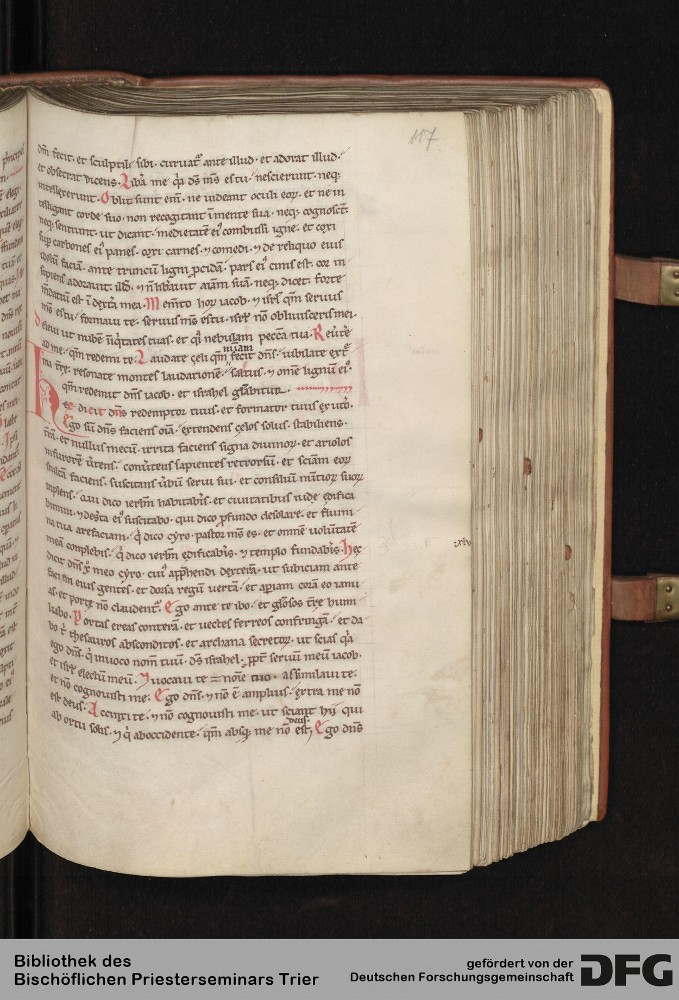 117
dm̄ fecit. et sculptile sibi. curuatꝰ ante illud. et adorat illud.
et obsecrat dicens. Liba me q̄a dš mš es tu. nescierunt. neq;
intellexerunt. Obliti sunt enī. ne uideant oculi eoꝝ. et ne in
telligant corde suo. non recogitant ī mente sua. neq; cognoscūt.
neq; sentiunt. ut dicant. medietatē eiꝰ combussi igne. et coxi
sup carbones eiꝰ panes. coxi carnes. ⁊ comedi. ⁊ de reliquo eius
ydolū faciā. ante truncū ligni ꝓcidā. pars eiꝰ cinis est. cor in
sipiens adorauit illd. ⁊ ñ libauit aīam suā. neq; dicet. forte
mdatiū est ī dextˉa mea. Memto hoꝝ iacob. ⁊ isrł qm̄ seruus
mš es tu. formaui te. seruus mš es tu. isrł nō obliuisceris mei.
deleui ut nubē iīq̇tates tuas. et q̇i nebulam peccˉa tua. Reuˉte
ad me. qm̄ redemi te. Laudate celi qm̄ fecit dnš. iubilate exˉte
misˉam
ma tˉre. resonate montes laudationē. saltus. ⁊ omē lignū eiꝰ.
qm̄ redemit dnš iacob. et israhel glˉabitur.
Hec dicit dnš redemptor tuus. et formator tuus ex utˉo.
Ego sū dnš faciens oīa. extendens celos solus. stabiliens
tˉrā. et nullus mecū. irrita faciens signa diuinoꝝ. et ariolos
in furorē uˉtens. conuˉtens sapientes retrorsū. et sciām eoꝝ
stultā faciens. suscitans uˉbū serui sui. et consiliū nūtioꝝ suoꝝ
īplens. Qui dico ierˉlm habitabˉis. et ciuitatibus iude edifica
bimini. ⁊ desˉta eiꝰ suscitabo. qui dico ꝓfundo desolare. et flumi
na tua arefaciam. q̇ dico cyro. pastor mš es. et omnē uoluntatē
meā complebis. q̇ dico ierˉlm edificabˉis. ⁊ templo fundabˉis. Hec
xlv
dicit dnš xꝑo meo cyro. cuiꝰ app̄hendi dexterā. ut subiciam ante
faciem eius gentes. et dorsa regū uertā. et apiam corā eo ianu
as. et porte nō claudentꝰ. Ego ante te ibo. et głosos tˉre humi
liabo. Portas ereas conterā. et uectes ferreos confringā. et da
bo tˉ thesauros absconditos. et archana secretoꝝ. ut scias q̄a
ego dnš. q̇ inuoco nom̄ tuū. dš israhel. ꝓpt̄ seruū meū iacob.
et isrł electū meū. ⁊ uocaui te noīe tuo. assimilaui te.
et nō cognouisti me. Ego dnš. ⁊ nō ē amplius. extra me nō
est deus. Accinxi te. ⁊ nō cognouisti me. ut sciant hij qui
ab ortu solis. ⁊ q̇ ab occidente. qm̄ absq; me nō est. Ego dnš
deus
Bibliothek des
Bischöflichen Priesterseminars Trier
gefördert von der
Deutschen Forschungsgemeinschaft
DFG